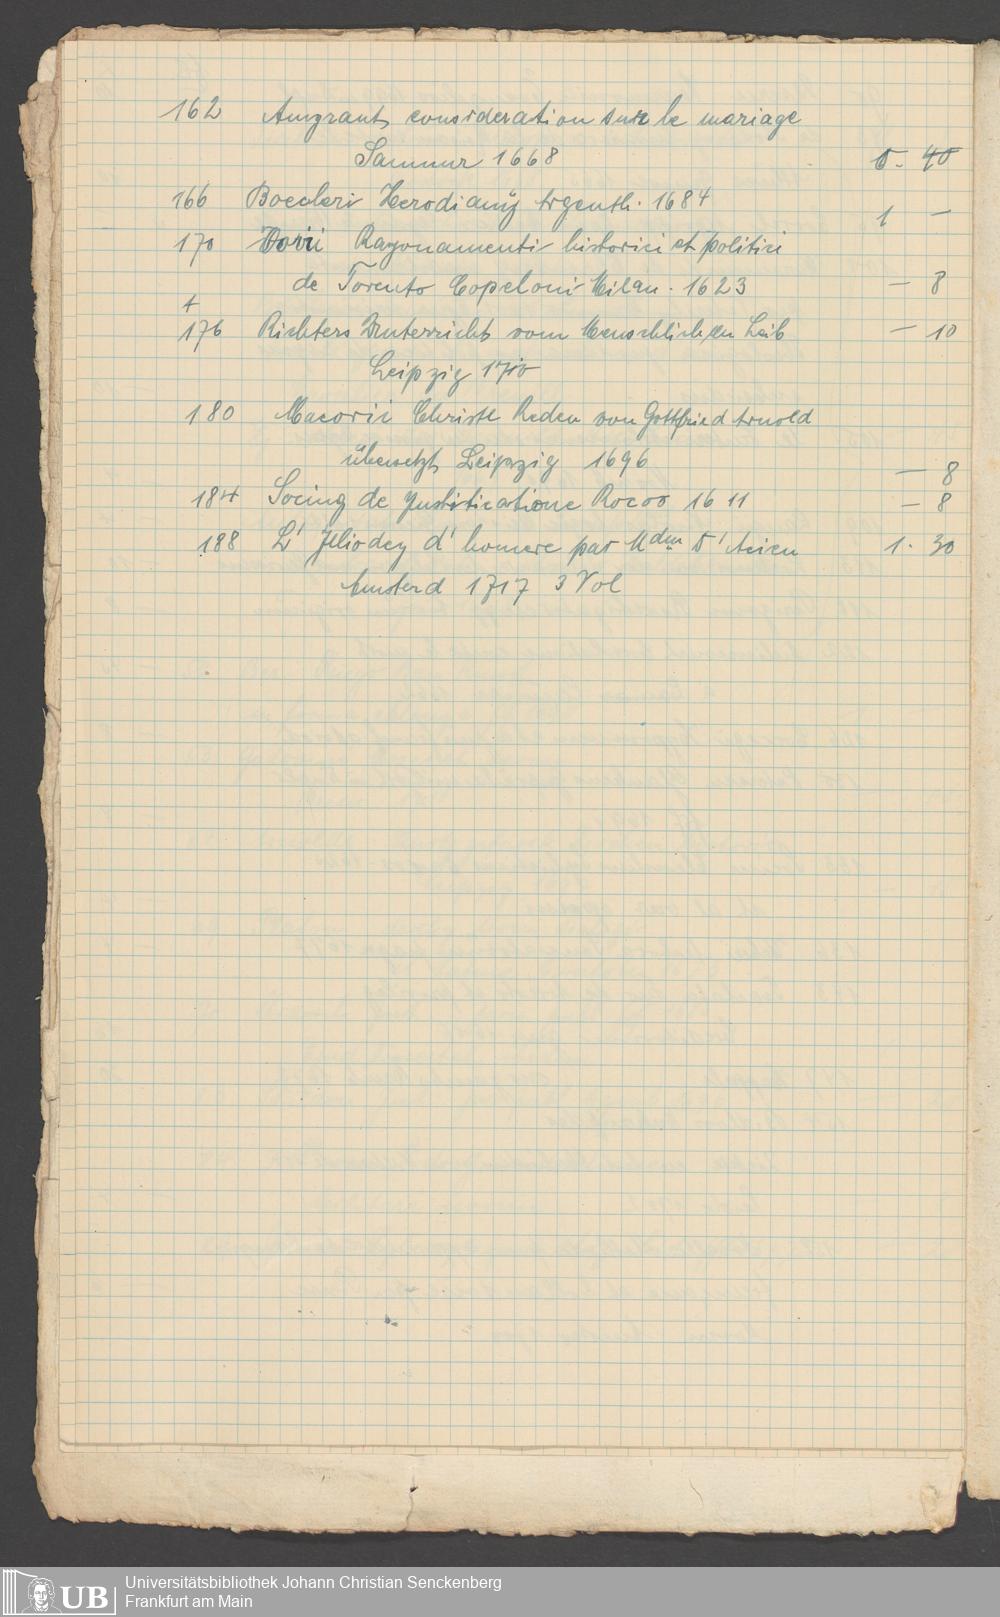 162 Amyraut consideration sur le mariage
Saumur 1668 0. 40
166 Boecleri Herodianÿ Argenth. 1684 1 —
170 Ragonamenti historici et politici
de Torento Copeloni Milan. 1623 — 8
+
176 Richters Unterricht vom Menschlichen Leib — 10
Leipzig 1710
180 Macorii Christl Reden von Gottfried Arnold
übersetzt Leipzig 1696 — 8
184 Socinÿ de Justificatione Rocoo 16 11 — 8
188 L' Jliodey d' homere par Mdm D' Acien 1. 30
Amsterd 1717 3 Vol
UB Universitätsbibliothek Johann Christian Senckenberg
Frankfurt am Main